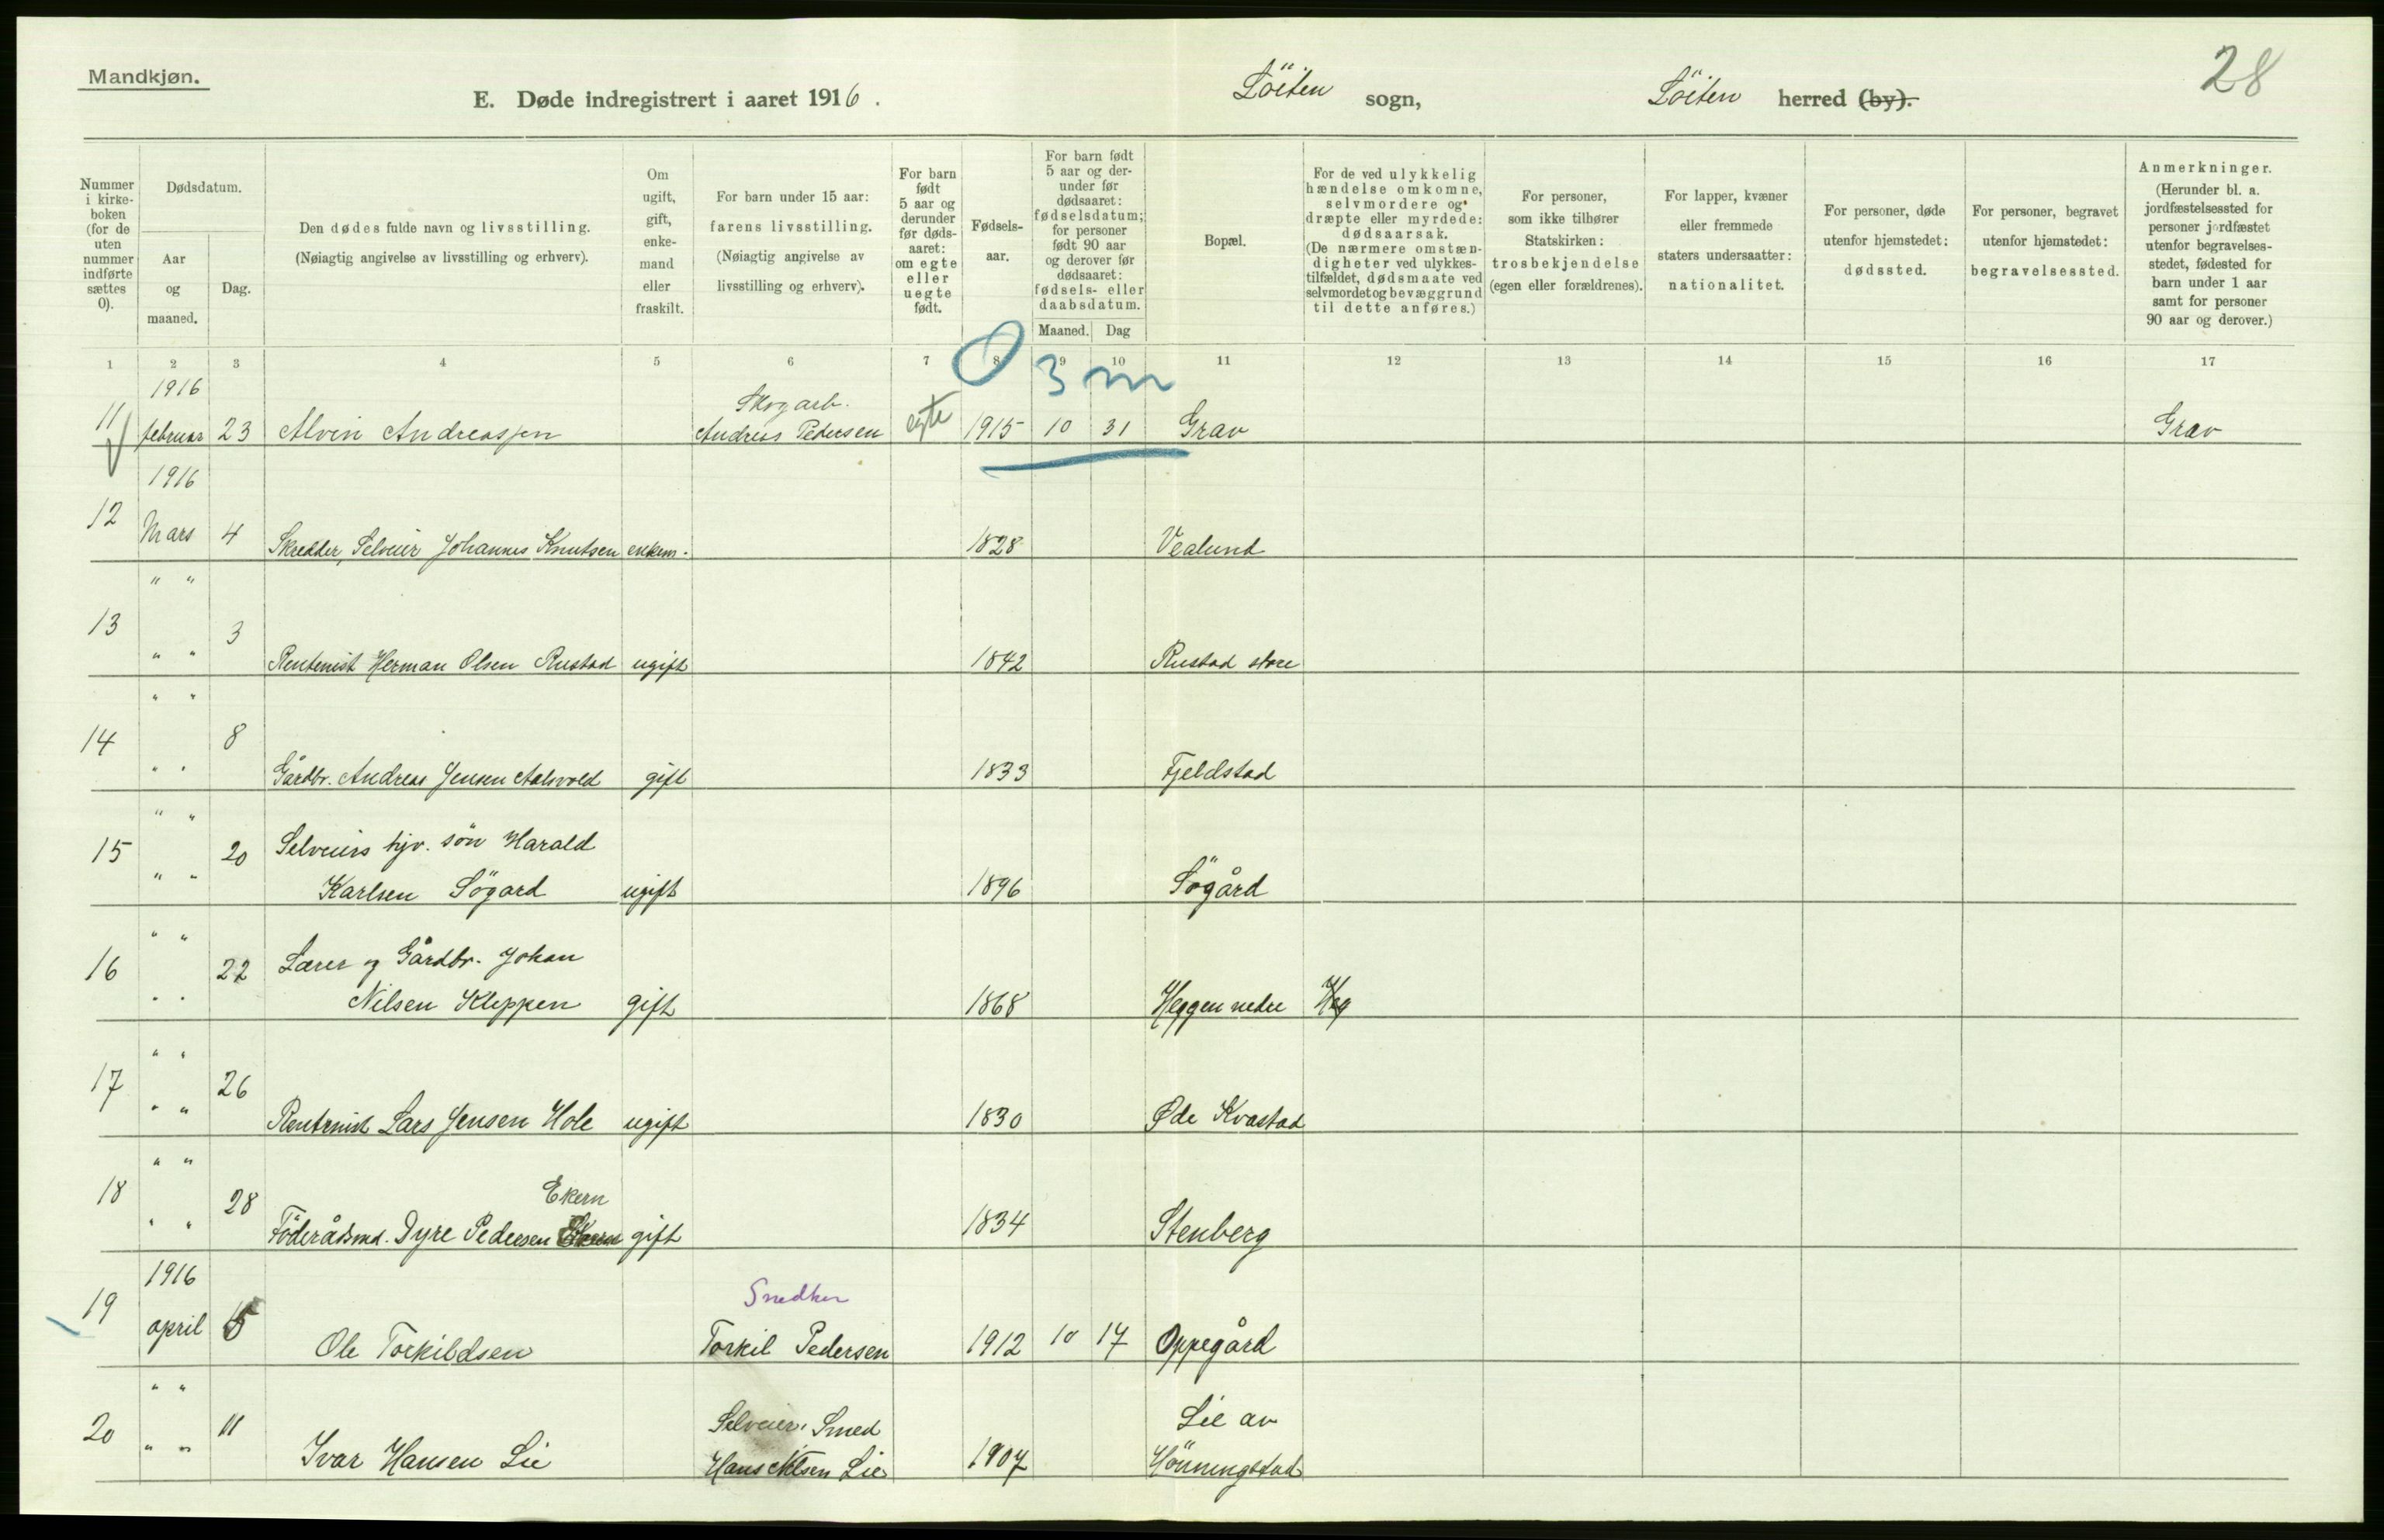 Mandkjøn.
E. Døde indregistrert i aaret 1916.
Löiten sogn,
Löiten herred (by).
28
Nummer i kirke-boken (for de uten nummer indførte sættes 0).
Dødsdatum.
Aar og maaned.
Dag.
Den dødes fulde navn og livsstilling.
(Nøiagtig angivelse av livsstilling og erhverv).
Om ugift, gift, enke-mand eller fraskilt.
For barn under 15 aar:
farens livsstilling.
(Nøiagtig angivelse av livsstilling og erhverv).
For barn født 5 aar og derunder før døds-aaret: om egte eller uegte født.
Fødsels-aar.
For barn født 5 aar og der-under før dødsaaret: fødselsdatum; for personer født 90 aar og derover før dødsaaret: fødsels- eller daabsdatum.
Maaned.
Dag
Bopæl.
For de ved ulykkelig hændelse omkomne, selvmordere og dræpte eller myrdede: dødsaarsak.
(De nærmere omstæn-digheter ved ulykkes-tilfældet, dødsmaate ved selvmordet og bevæggrund til dette anføres.)
For personer, som ikke tilhører Statskirken: trosbekjendelse (egen eller forældrenes).
For lapper, kvæner eller fremmede staters undersaatter: nationalitet.
For personer, døde utenfor hjemstedet: dødssted.
For personer, begravet utenfor hjemstedet: begravelsessted.
Anmerkninger.
(Herunder bl. a. jordfæstelsessted for personer jordfæstet utenfor begravelses-stedet, fødested for barn under 1 aar samt for personer 90 aar og derover.)
1 2 3 4 5 6 7 8 9 10 11 12 13 14 15 16 17
0 3 m
1916
Skogarb.
11 februar 23 Alvin Andreassen Andreas Pedersen egte 1915 10 31 Grav Grav
1916
12 Mars 4 Skredder, Selveier Johannes Knutsen enkem. 1828 Vealund
" "
13 " " 3 Rentenist Herman Olsen Rustad ugift 1842 Rustad store
" "
14 " " 8 Gårdbr. Andreas Jensen Aalsvold gift 1833 Fjeldstad
" "
15 20 Selveiers hjv. sön Harald
" " Karlsen Sögard ugift 1896 Sögård
" "
16 22 Lærer og Gårdbr. Johan
" " Nilsen Kleppen gift 1868 Heggen nedre Heg
" "
17 " " 26 Rentenist Lars Jensen Hole ugift 1830 Øde Kvastad
" "
Ekern
18 " " 28 Föderådsmd. Dyre Pedersen Ekern gift 1834 Stenberg
1916
Snedker
19 april 5 Ole Torkildsen Torkil Pedersen 1912 10 17 Oppegård
" "
Selveier, Smed Lie av
20 " " 11 Ivar Hansen Lie Hans Nilsen Lie 1907 Hönningstad